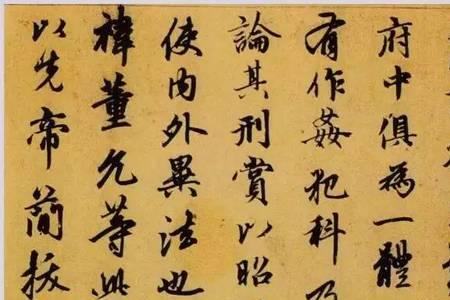 府中俱為一體
有作姦犯科
論其刑賞以昭
使内外異法也
禕董允等此
以先帝簡拔